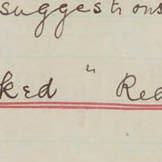 suggestions
ked " Reb